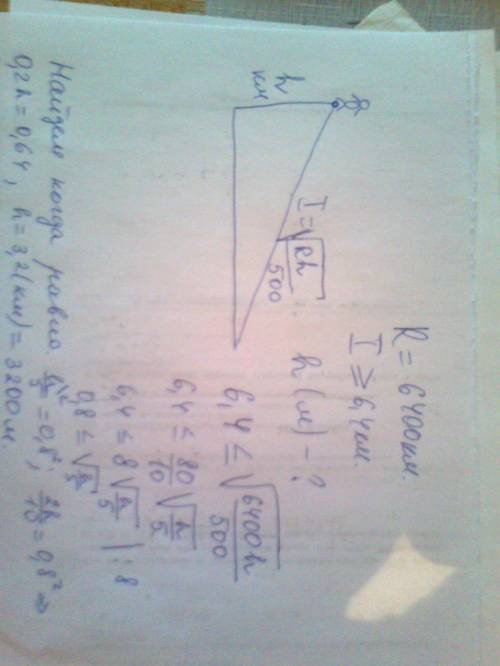 R = 6400 км.
I ≥ 6,4 км.
h (м) – ?
h
км
I = √(Rh/500)
6,4 ≤ √(6400h/500)
6,4 ≤ 80/10 √(h/5)
6,4 ≤ 8 √(h/5) | : 8
0,8 ≤ √(h/5)
Найдем когда равно. h/5 = 0,8²; 2h/10 = 0,8² ⇒
0,2h = 0,64, h = 3,2 (км) = 3200 м.